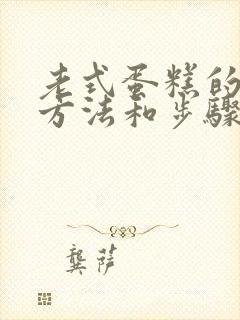 老式蛋糕的
方法和步骤
龚萨